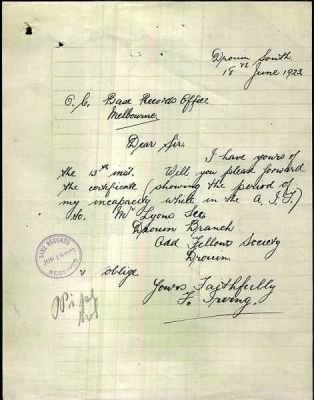 Drouin South
18th June 1923
O.C. Base Records Office
Melbourne
Dear Sir,
I have yours of
the 13th inst. Will you please forward
the certificate (showing the period of
my incapacity while in the A.I.F)
to. Mr Lyons Sec
Drouin Branch
Odd Fellows Society
Drouin.
& oblige
Yours Faithfully
F. Irving.
BASE RECORDS
RECEIVED